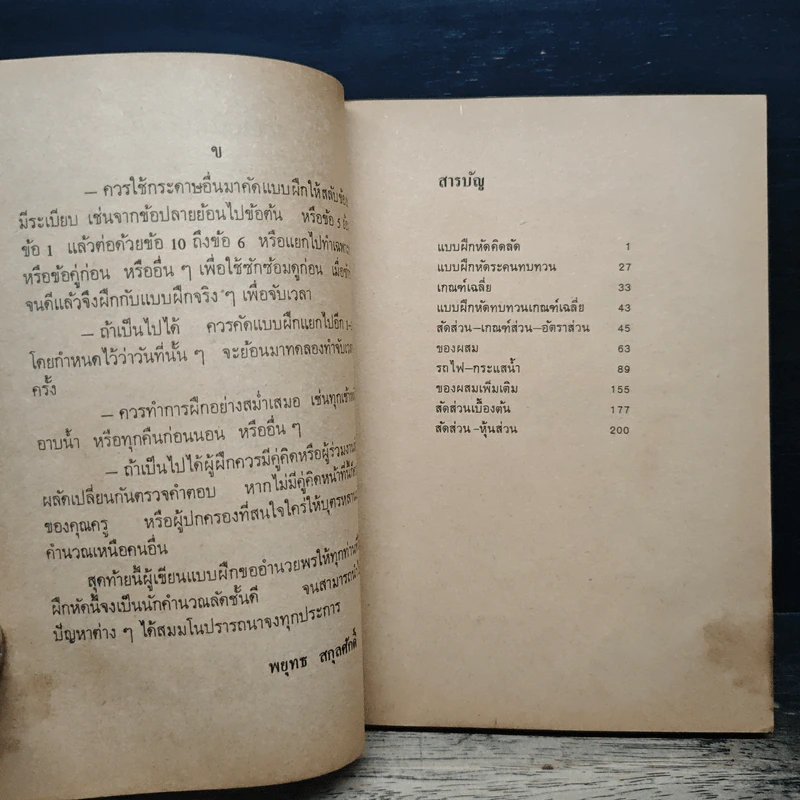 ข
— ควรใช้กระดาษอื่นมาคัดแบบฝึกให้สลับข้อ
มีระเบียบ เช่นจากข้อปลายย้อนไปข้อต้น หรือข้อ 5
ข้อ 1 แล้วต่อด้วยข้อ 10 ถึงข้อ 6 หรือแยกไปทำ
หรือข้อคู่ก่อน หรืออื่น ๆ เพื่อใช้ซักซ้อมดูก่อน เมื่อ
จนดีแล้วจึงฝึกกับแบบฝึกจริง ๆ เพื่อจับเวลา
— ถ้าเป็นไปได้ ควรคัดแบบฝึกแยกไปอีก
โดยกำหนดไว้ว่าวันที่นั้น ๆ จะย้อนมาทดลองทำจับ
ครั้ง
— ควรทำการฝึกอย่างสม่ำเสมอ เช่นทุกเช้า
อาบน้ำ หรือทุกคืนก่อนนอน หรืออื่น ๆ
— ถ้าเป็นไปได้ผู้ฝึกควรมีคู่คิดหรือผู้ร่วมงาน
ผลัดเปลี่ยนกันตรวจคำตอบ หากไม่มีคู่คิดหน้าที่นี้
ของคุณครู หรือผู้ปกครองที่สนใจใคร่ให้บุตรหลาน
คำนวณเหนือคนอื่น
สุดท้ายนี้ผู้เขียนแบบฝึกขออำนวยพรให้ทุกท่าน
ฝึกหัดนี้จงเป็นนักคำนวณลัดชั้นดี จนสามารถ
ปัญหาต่าง ๆ ได้สมมโนปรารถนาจงทุกประการ
พยุทธ สกุลศักดิ์
สารบัญ
แบบฝึกหัดคิดลัด 1
แบบฝึกหัดระคนทบทวน 27
เกณฑ์เฉลี่ย 33
แบบฝึกหัดทบทวนเกณฑ์เฉลี่ย 43
สัดส่วน—เกณฑ์ส่วน—อัตราส่วน 45
ของผสม 63
รถไฟ—กระแสน้ำ 89
ของผสมเพิ่มเติม 155
สัดส่วนเบื้องต้น 177
สัดส่วน -หุ้นส่วน 200